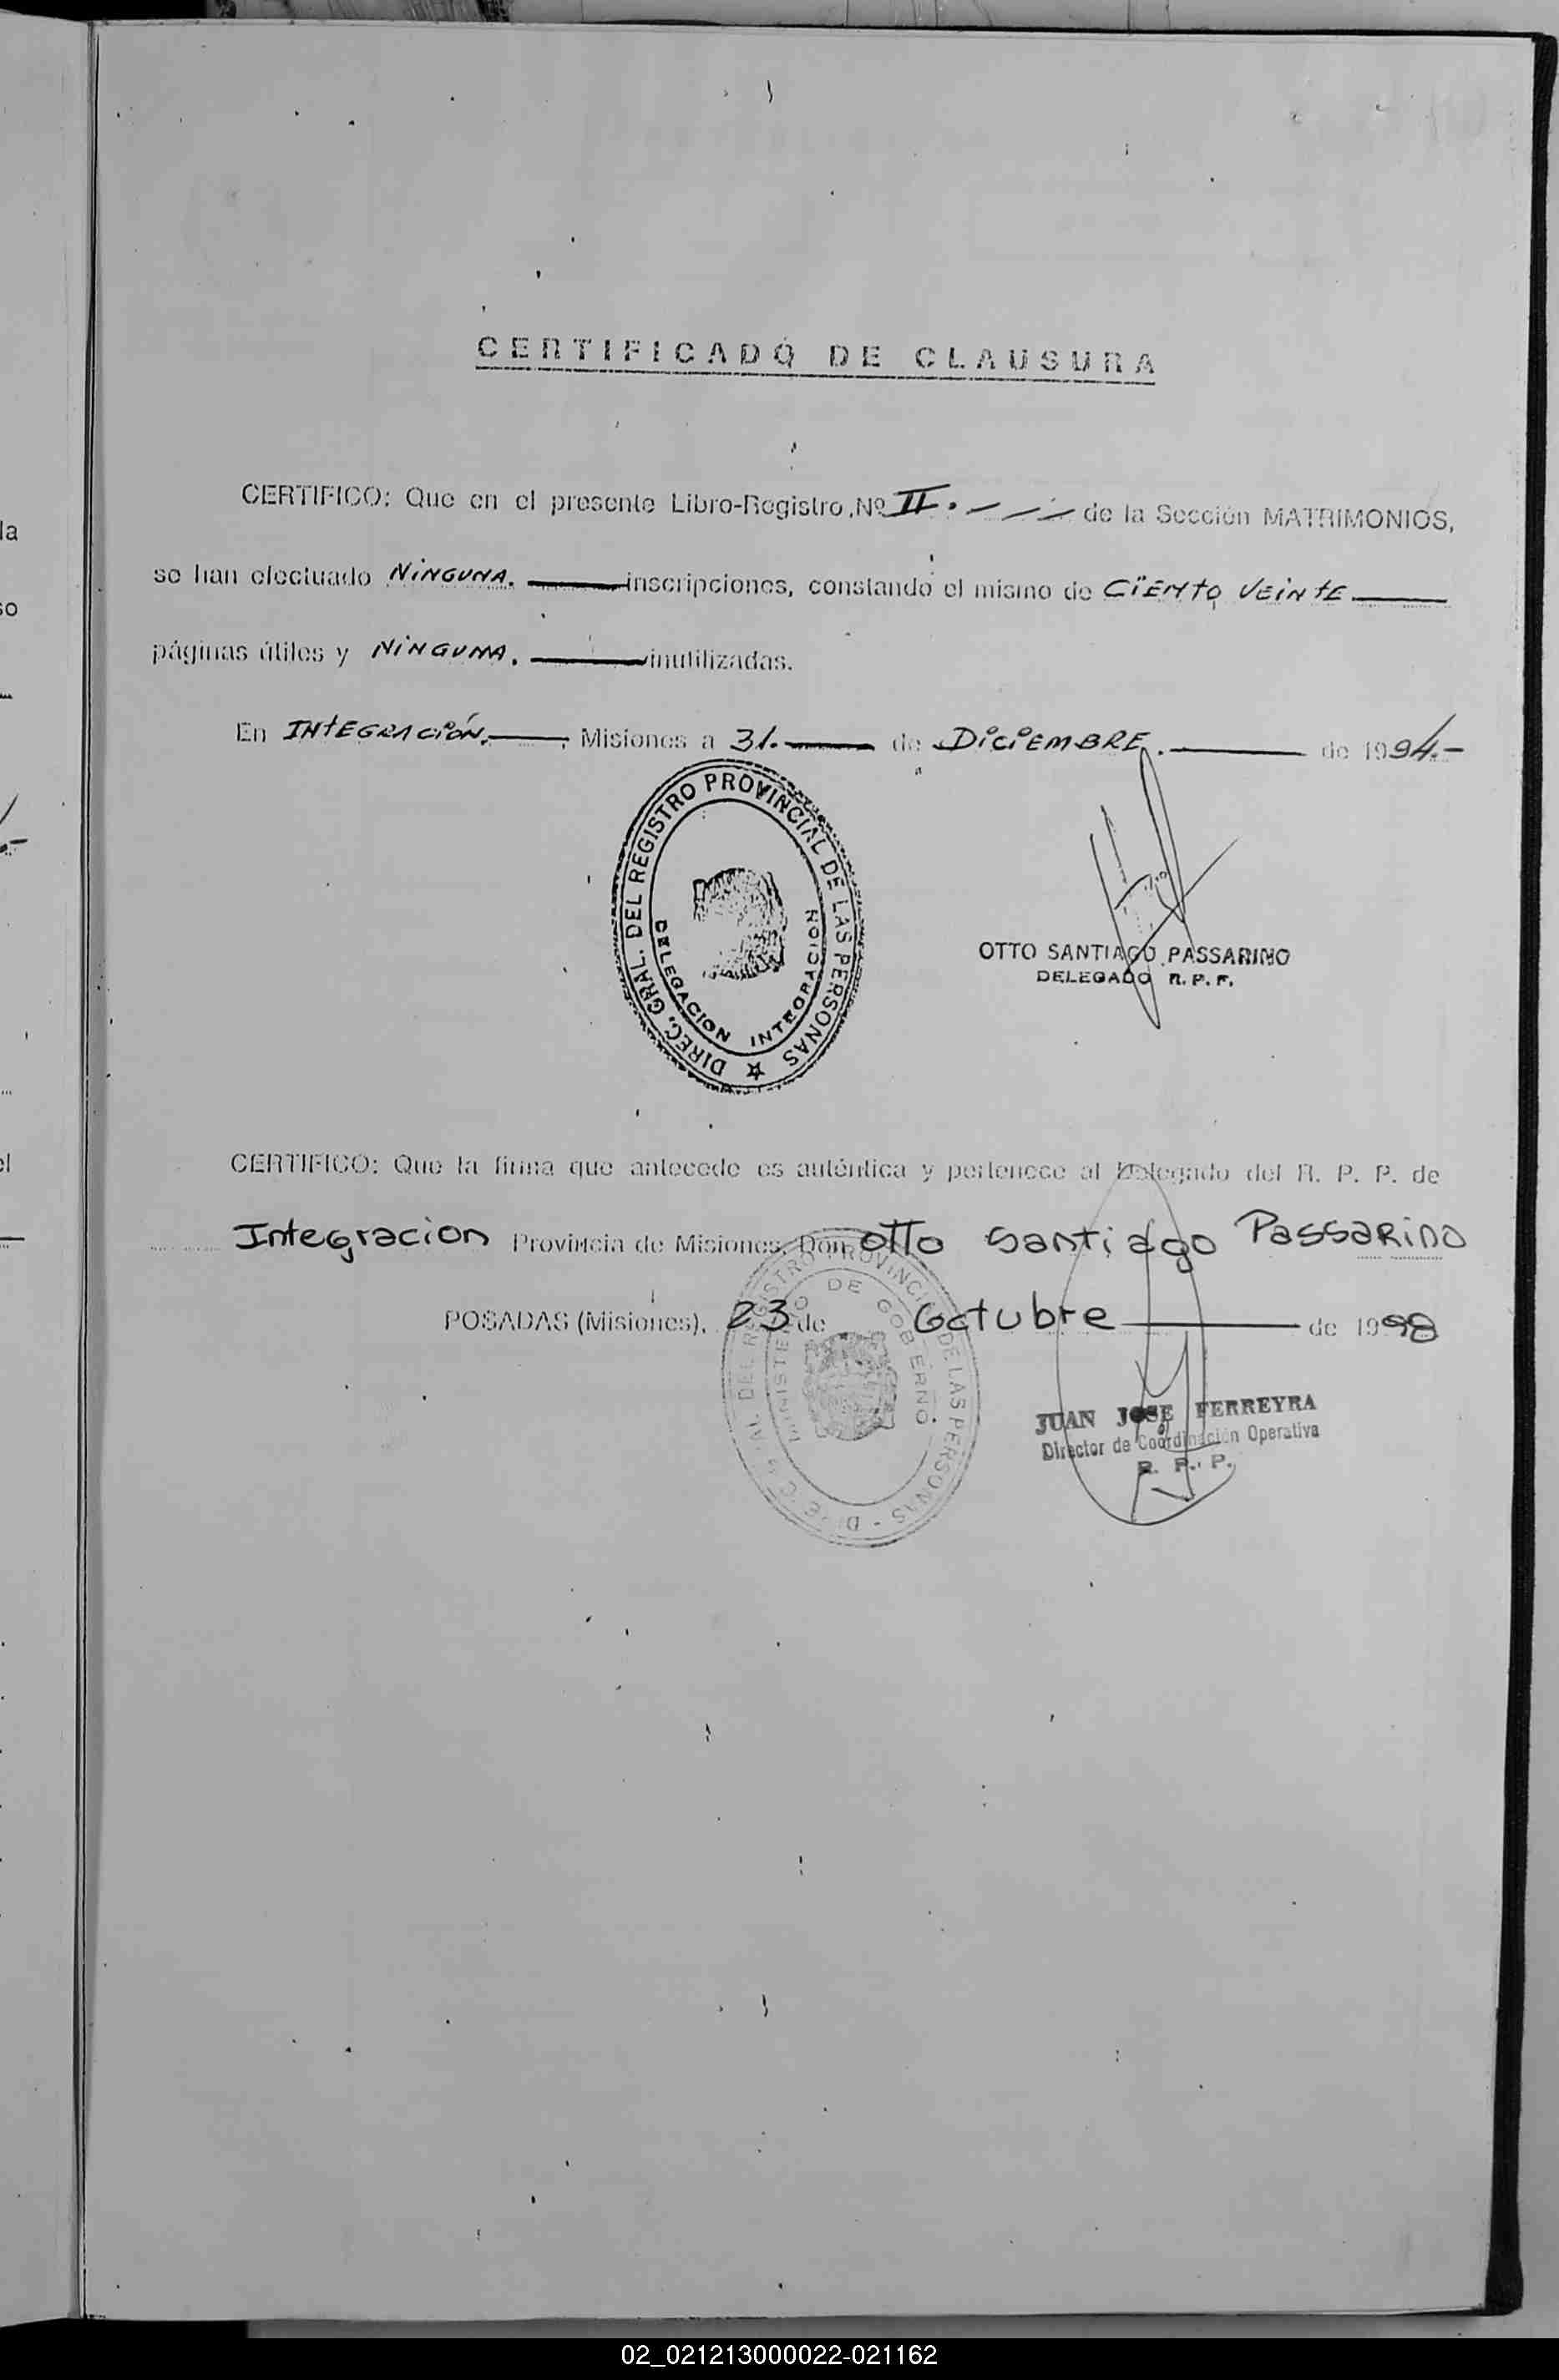 CERTIFICADO DE CLAUSURA
CERTIFICO: Que en el presente Libro-Registro Nº II. - - - de la Sección MATRIMONIOS,
se han efectuado NINGUNA. inscripciones, constando el mismo de CIENTO VEINTE
páginas útiles y NINGUNA. inutilizadas.
En INTEGRACIÓN. , Misiones a 31. de DICIEMBRE. de 1994.-
DIREC. GRAL. DEL REGISTRO PROVINCIAL DE LAS PERSONAS
DELEGACION INTEGRACION
OTTO SANTIAGO PASSARINO
DELEGADO R. P. P.
CERTIFICO: Que la firma que antecede es auténtica y pertenece al Delegado del R. P. P. de
Integracion Provincia de Misiones, Don otto Santiago Passarino
POSADAS (Misiones), 23 de Octubre de 1998
MINISTERIO DE GOBIERNO
JUAN JOSE FERREYRA
Director de Coordinación Operativa
R. P. P.
la
so
el
02_021213000022-021162